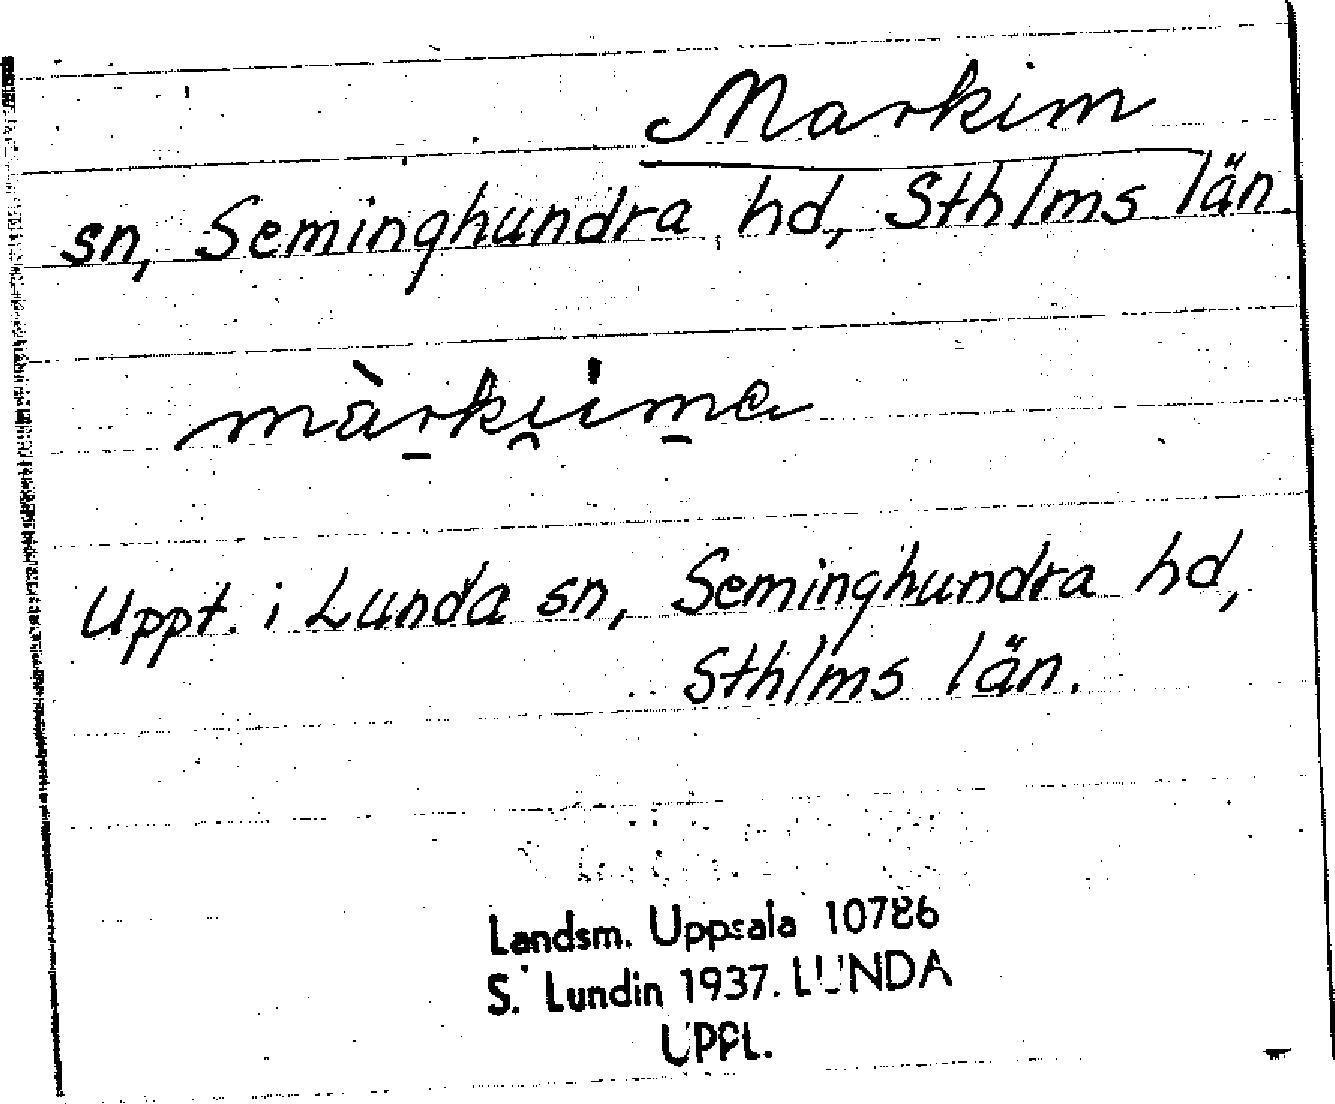 Markim
sn, Seminghundra hd, Sthlms län.
Uppt. i Lunda sn, Seminghundra hd,
Sthlms län.
Landsm. Uppsala 10786
S. Lundin 1937. LUNDA
UPPL.